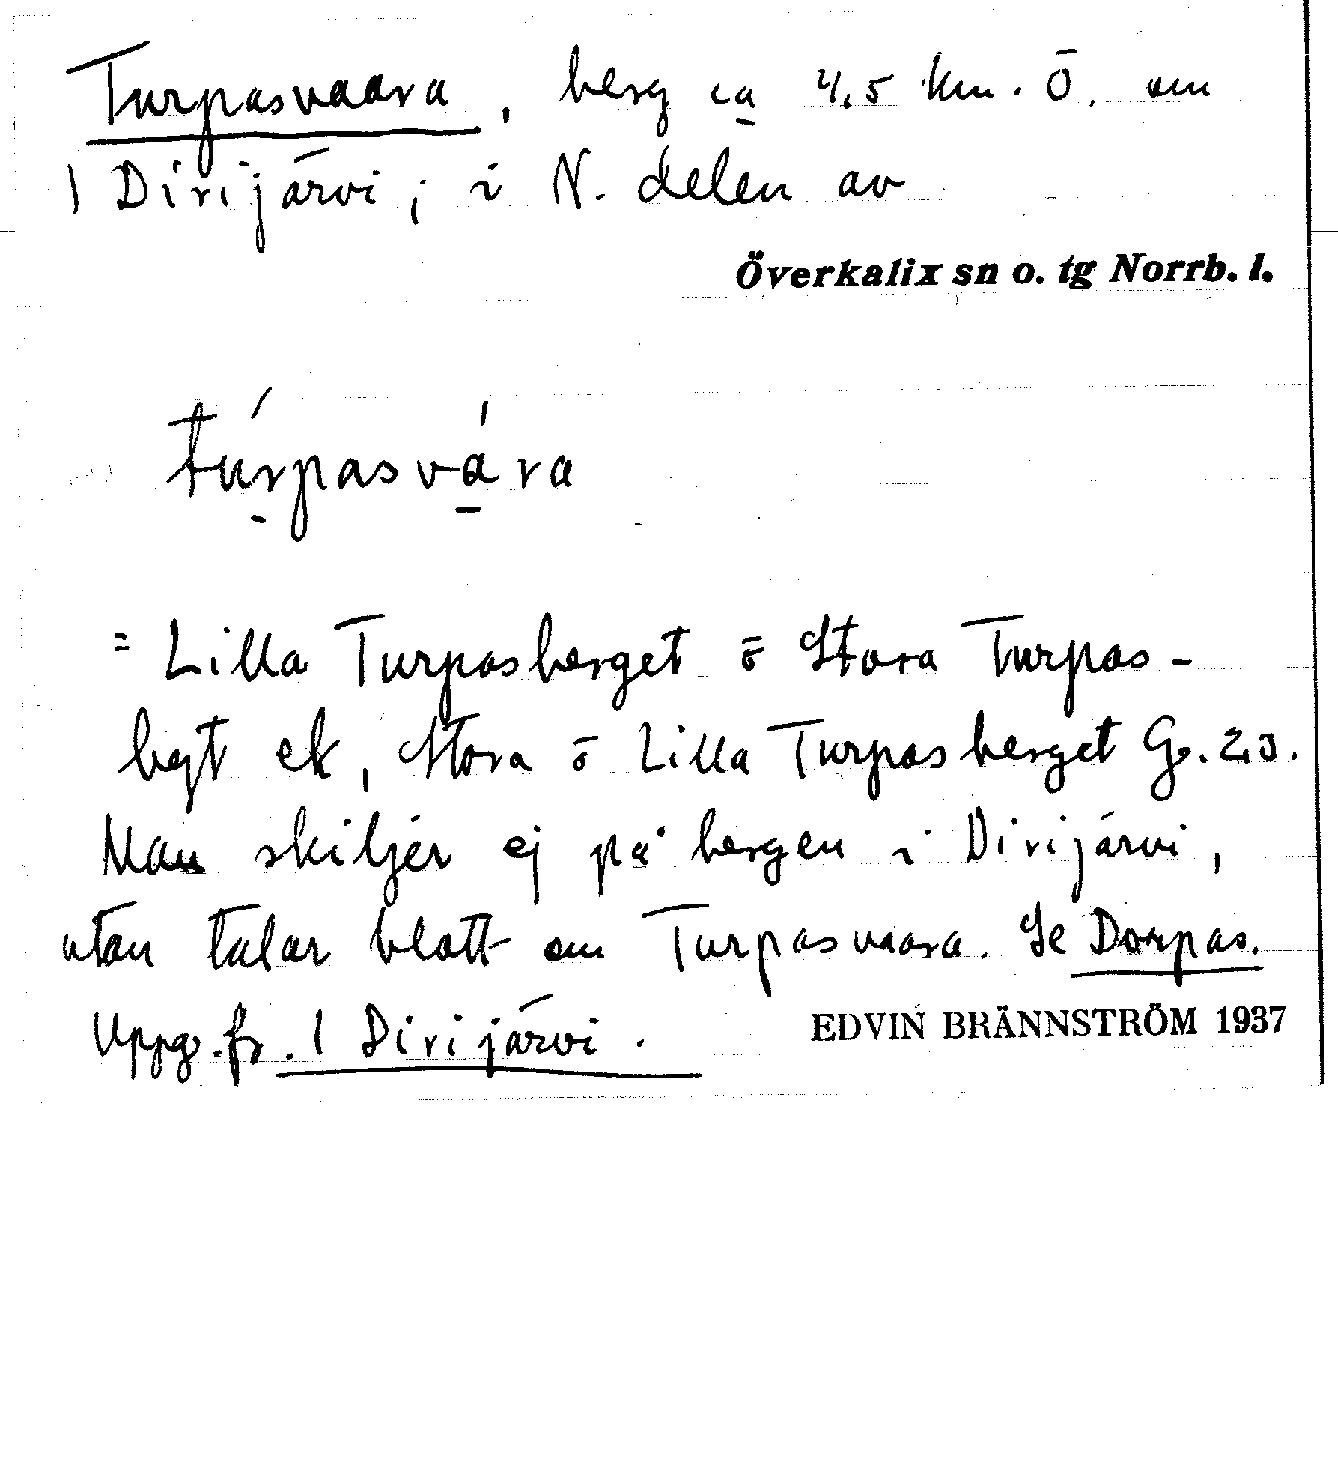 Turpasvaara, berg ca 4,5 km. Ö. om
1 Dirijärvi, i N. delen av
Överkalix sn o. tg Norrb. l.
túrpasvára
= Lilla Turpasberget o Stora Turpas-
bgt ek, Stora o Lilla Turpasberget Gs. 23.
Man skiljer ej på bergen i Dirijärvi,
utan talar blott om Turpasvaara. Se Dorpas.
Uppg. fr. 1 Dirijärvi.
EDVIN BRÄNNSTRÖM 1937